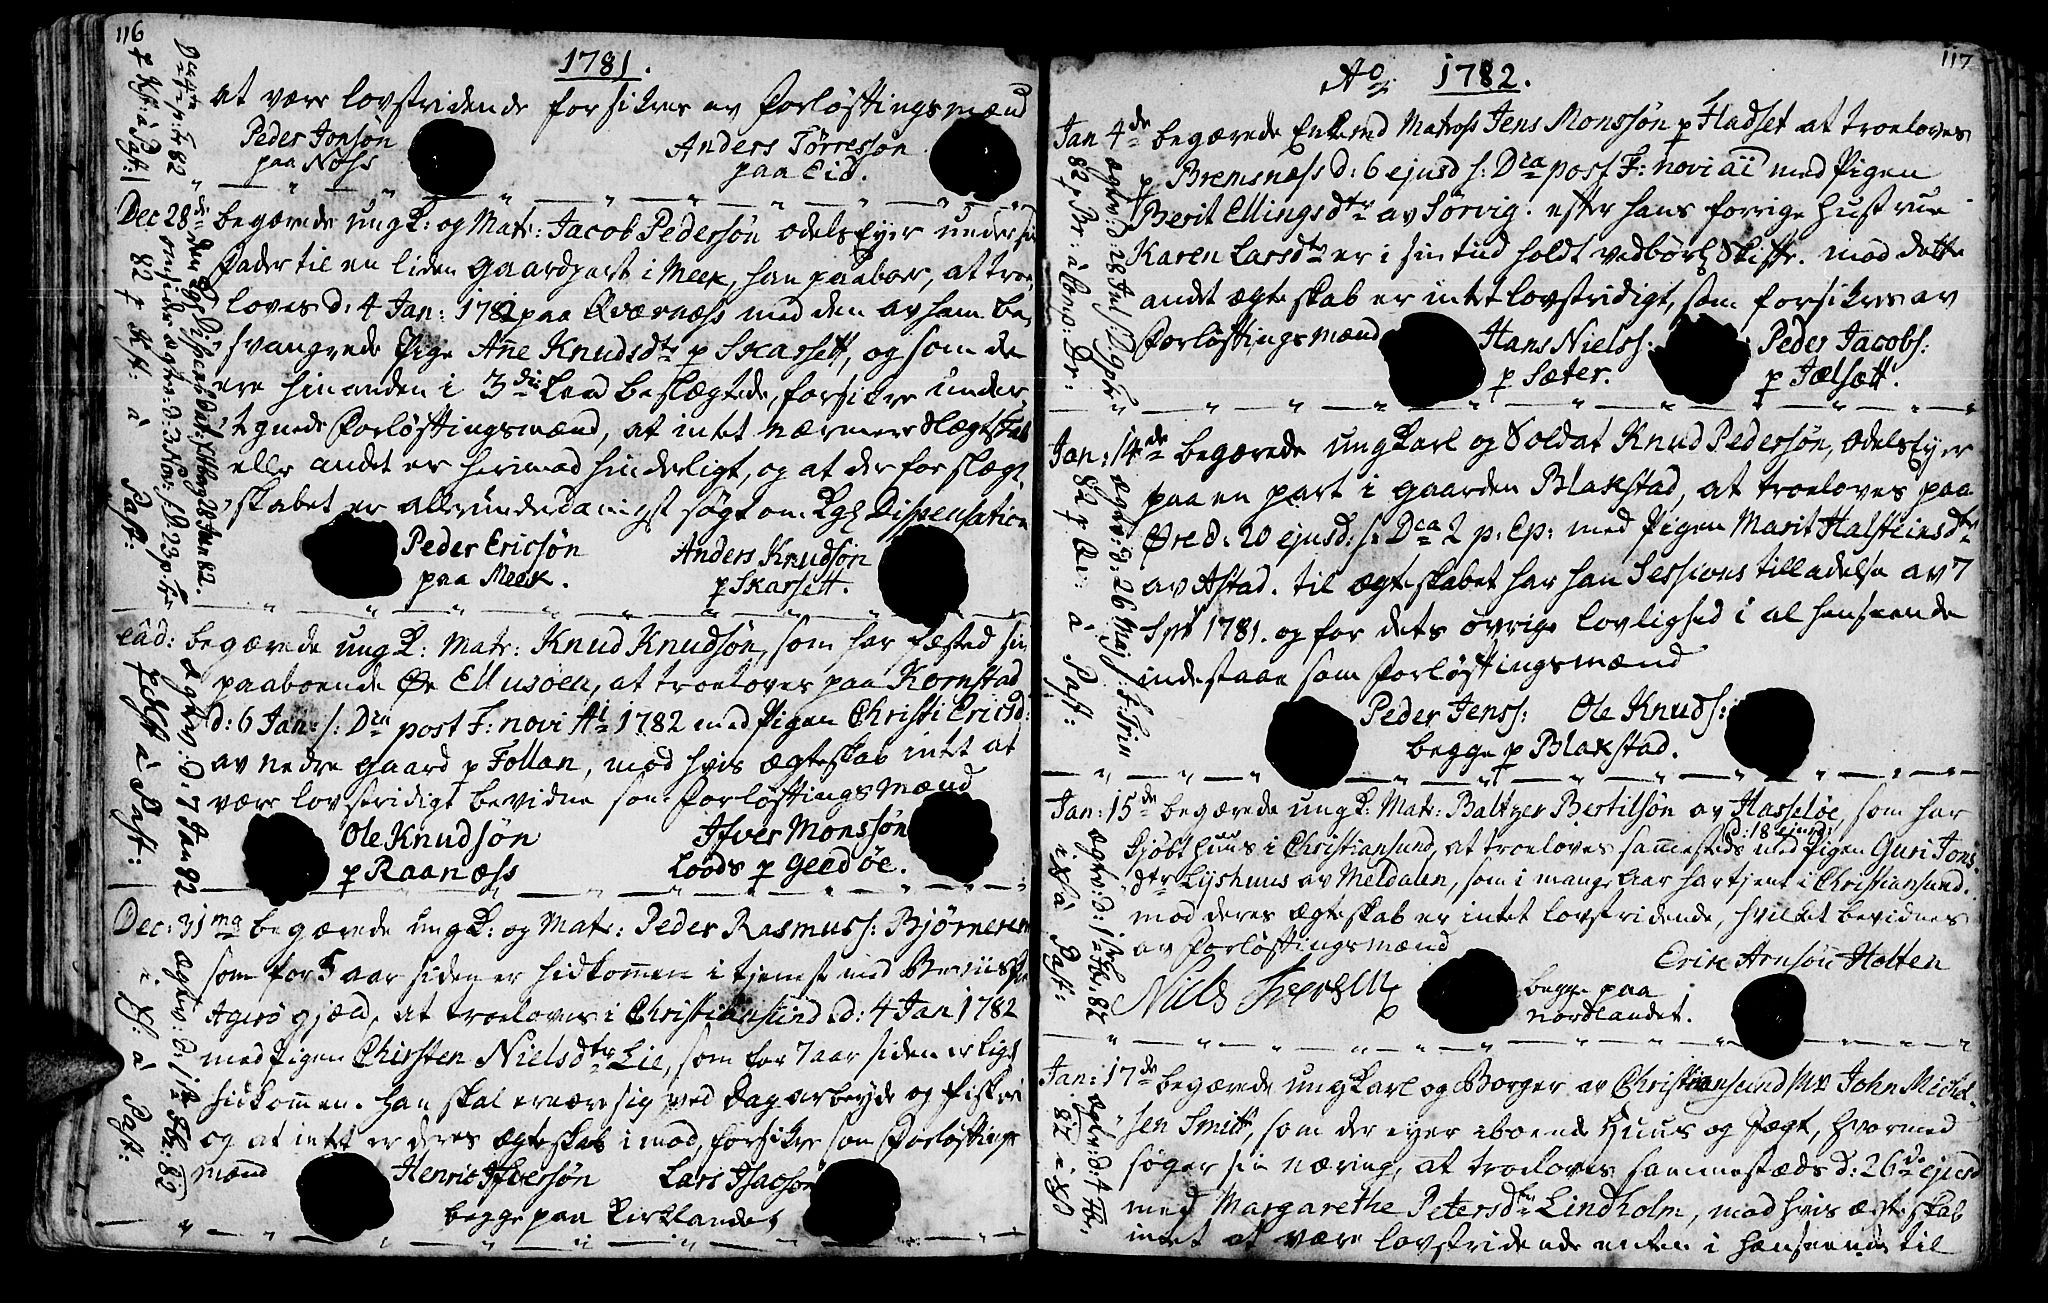 116
1781.
at være lovstridende forsikres av Forløftingsmænd
Peder Jonsøn
paa Noss
Anders Tørresøn
paa Eid.
Dec 28de begærede ungK: og Matr: Jacob Pedersøn odels Eyer under sin
Fader til en liden gaardpart i Meek, han paaboer, at troe
loves d: 4 Jan: 1782 paa Qværness med den av ham be
svangrede Pige Ane Knudsdtr p Skarsett, og som de
ere hinanden i 3die Leed beslægtede, forsikre under
tegnede Forløftingsmænd, at intet nærmere Slægtskab
eller andet er herimod hinderligt, og at der for slægt
skabet er allerunderdanigst søgt om Kgl Dispensation
Peder Ericsøn
paa Meek.
Anders Knudsøn
p Skarsett.
ead: begærede ungK: Matr: Knud Knudsøn, som har fæsted sin
paaboende Øe Ellusøen, at troeloves paa Kornstad
d: 6 Jan: s: Dca post F: novi Ai 1782 med Pigen Christi Ericsd:
av nedre gaard p Follan, mod hvis Ægteskab intet at
være lovstridigt bevidne som Forløftingsmænd
Ole Knudsøn
p Raanæss
Ifver Monssøn
Loods p Geedøe.
Dec: 31ma begærede ungK: og Matr: Peder Rasmuss: Bjørneren
som for 5 aar siden er hidkommen i tjeneste med
Agerø gjæld, at troeloves i Christiansund d: 4 Jan 1782
med Pigen Chirsten Nielsdtr Lie, som for 7 aar siden er ligel
hidkommen. han skal ernære sig ved Dagarbeyde og Fiskeri
og at intet er deres Ægteskab imod, forsikre som Forløftings
mænd
Henric Ifversøn
Lars Isacsøn
begge paa Kirklandet
117
Ao 1782.
Jan 4de begærede Enkemd Matross Jens Monssøn p Hadset at troeloves
p Bremsness d: 6 ejusd s: Dca post F: novi ai med Pigen
Berit Ellingsdtr av Sørvig. efter hans forrige hustrue
Karen Larsdtr er i sin tiid holdt vedbørl Skifte. mod dette
andet ægteskab er intet lovstridigt, som forsikres av
Forløftingsmænd
Hans Nielss:
p Sæter.
Peder Jacobs:
p Jælsætt.
Jan: 14de begærede ungKarl og Soldat Knud Pedersøn, Odels Eyer
paa en part i gaarden Blakstad, at troeloves paa
Øre d: 20 ejusd: s: Dca 2 p: Ep: med Pigen Marit Halsteinsdtr
av Astad. til ægteskabet har han Sessions tilladelse av 7
Spt 1781. og for dets øvrige lovlighed i al henseende
indestaae som Forløftingsmænd
Peder Jenss: Ole Knuds:
begge p Blakstad.
Jan: 15de begærede ungK: Matr: Baltzer Bertilsøn av Hasseløe, som har
d: 18 ejusd:
kjøbt huus i Christiansund, at troeloves sammesteds med Pigen Guri Jons
dtr Lijshuus av Meldalen, som i mange aar har tjent i Christiansund.
mod deres ægteskab er intet lovstridende, hvilket bevidnes
av Forløftingsmænd
Erik Arnsøn Holten
Niels
begge paa
nordlandet.
Jan: 17de begærede ungKarl og Borger av Christiansund Mr John Michel
sen Smitt, som der eyer iboende Huus og Jægt, hvormed
søger sin næring, at troeloves sammestæds d: 26de ejusd
med Margarethe Petersdtr Lindholm, mod hvis ægteskab
intet at være lovstridende enten i henseende til